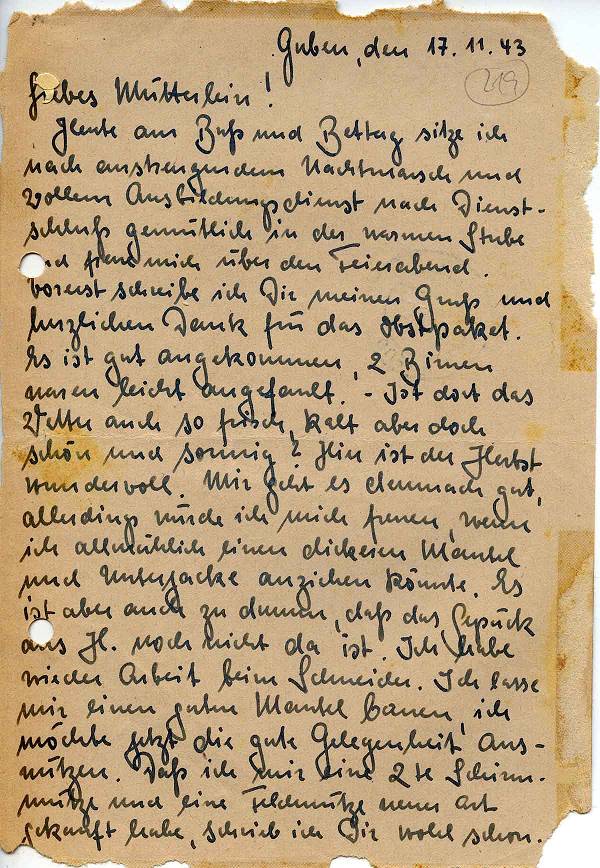 Guben, den 17.11.43
219
Liebes Mütterlein!
Heute am Buß und Bettag sitze ich
nach anstrengendem Nachtmarsch und
vollem Ausbildungsdienst nach Dienst-
schluß gemütlich in der warmen Stube
und freue mich über den Feierabend.
Vorerst schreibe ich Dir meinen Gruß und
herzlichen Dank für das Obstpaket.
Es ist gut angekommen, 2 Birnen
waren leicht angefault. - Ist dort das
Wetter auch so frisch, kalt aber doch
schön und sonnig? Hier ist der Herbst
wundervoll. Mir geht es demnach gut,
allerdings würde ich mich freuen, wenn
ich allmählich einen dickeren Mantel
und Unterjacke anziehen könnte. Es
ist aber auch zu dumm, daß das Gepäck
aus H. noch nicht da ist. Ich habe
wieder Arbeit beim Schneider. Ich lasse
mir einen guten Mantel bauen, ich
möchte jetzt die gute Gelegenheit aus-
nützen. Daß ich mir eine 2te Schirm-
mütze und eine Feldmütze neuer Art
gekauft habe, schrieb ich Dir wohl schon.